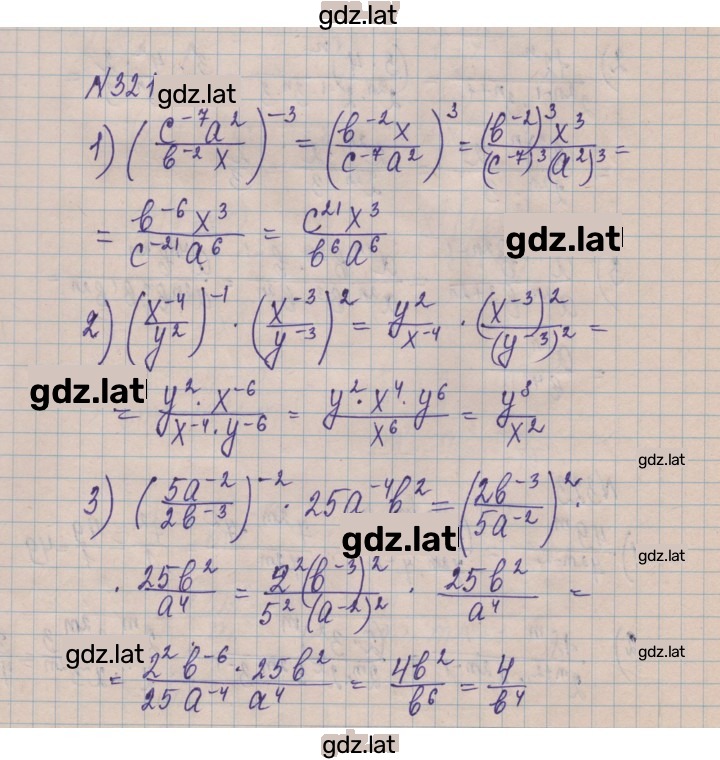 gdz.lat
№321
gdz.lat
1) (c⁻⁷a²/в⁻²x)⁻³ = (в⁻²x/c⁻⁷a²)³ = (в⁻²)³x³/(c⁻⁷)³(a²)³ =
= в⁻⁶x³/c⁻²¹a⁶ = c²¹x³/в⁶a⁶
gdz.lat
2) (x⁻⁴/y²)⁻¹ · (x⁻³/y⁻³)² = y²/x⁻⁴ · (x⁻³)²/(y⁻³)² =
gdz.lat
= y²·x⁻⁶/x⁻⁴·y⁻⁶ = y²·x⁴·y⁶/x⁶ = y⁸/x²
gdz.lat
3) (5a⁻²/2в⁻³)⁻² · 25a⁻⁴в² = (2в⁻³/5a⁻²)² ·
gdz.lat
gdz.lat
· 25в²/a⁴ = 2²(в⁻³)²/5²(a⁻²)² · 25в²/a⁴ =
gdz.lat
gdz.lat
= 2²в⁻⁶·25в²/25a⁻⁴ a⁴ = 4в²/в⁶ = 4/в⁴
gdz.lat